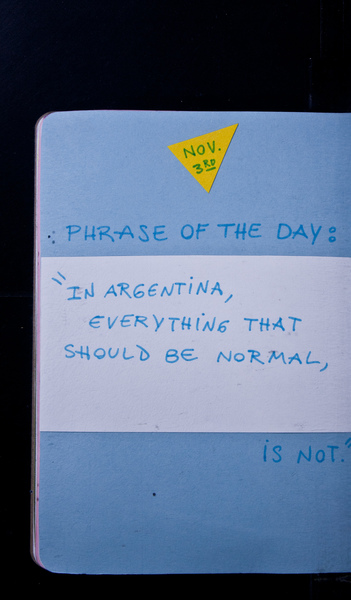 NOV.
3RD
PHRASE OF THE DAY:
"IN ARGENTINA,
EVERYTHING THAT
SHOULD BE NORMAL,
IS NOT."